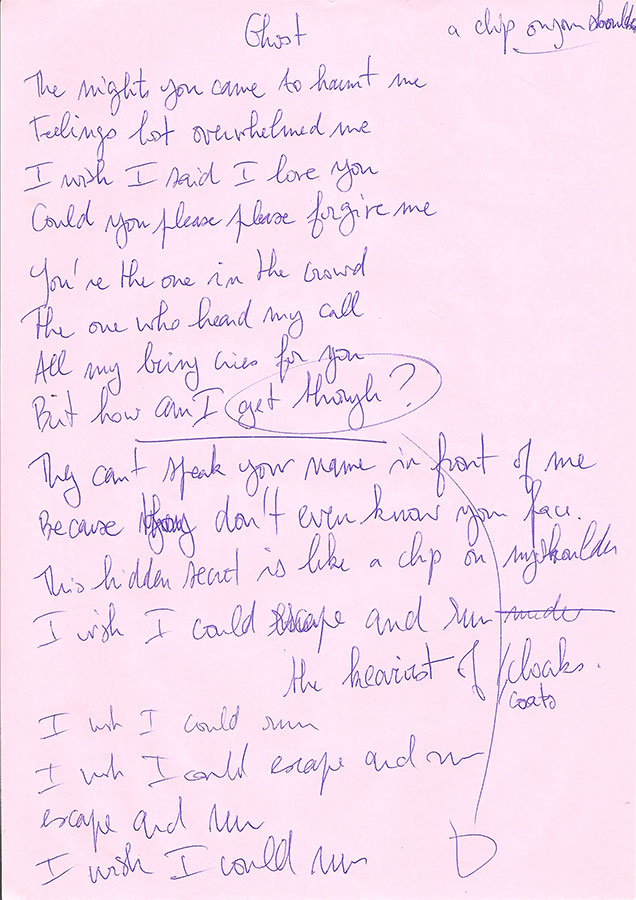 Ghost
a chip on your shoulder
The night you came to haunt me
Feelings hot overwhelmed me
I wish I said I love you
Could you please please forgive me
You're the one in the crowd
The one who heard my call
All my being cries for you
But how can I get through?
They can't speak your name in front of me
Because they don't even know your face.
This hidden secret is like a chip on my shoulder
I wish I could escape and run under
the heaviest of cloaks.
coats
I wish I could run
I wish I could escape and run
escape and run
I wish I could run